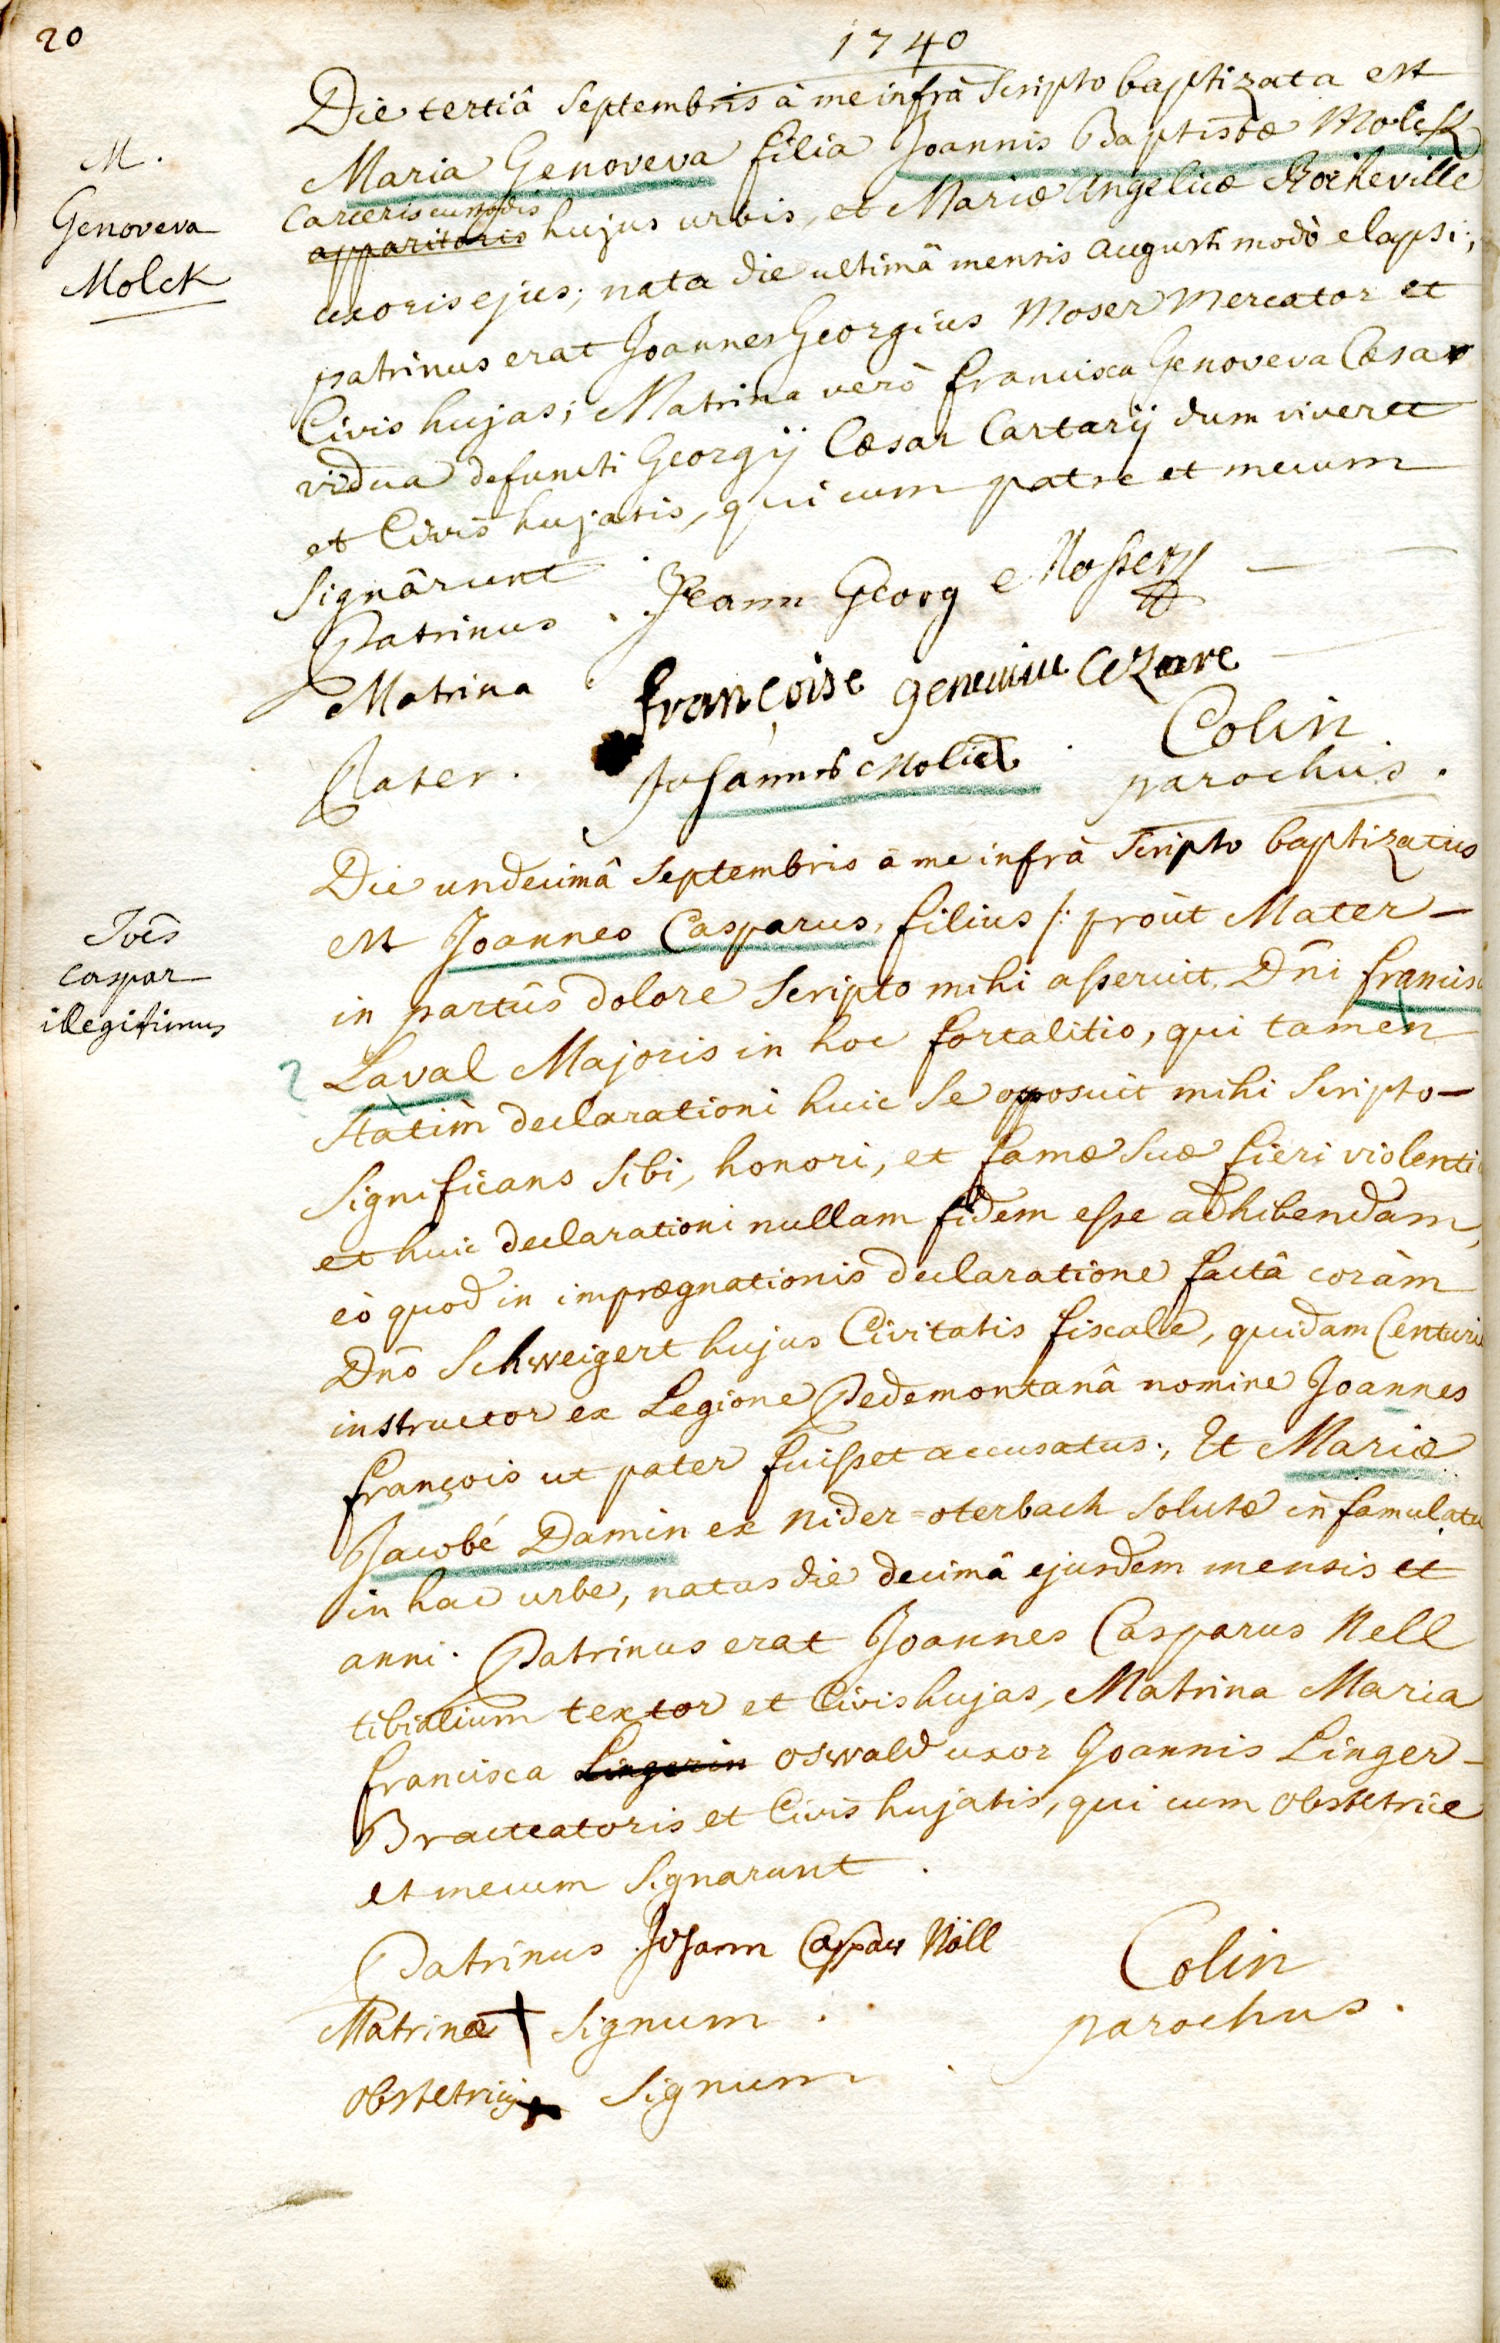 20
1740
M.
Genoveva
Molck
Die tertiâ Septembris à me infrà scripto baptizata est
Maria Genoveva filia Joannis Baptistæ Molck
carceris custodis
apparitoris hujus urbis, et Mariæ Angelicæ Rocheville
uxoris ejus; nata die ultimâ mensis augusti modò elapsi;
patrinus erat Joannes Georgius Moser Mercator et
Civis hujas; Matrina verò francisca Genoveva Cæsar
vidua defuncti Georgij Cæsar Cartarij dum viveret
et Civis hujatis, qui cum patre et mecum
signârunt
Patrinus . Jeann Georg Mosser
Matrina . françoise geneuiue Cezare
Pater . Johannes Molick . Colin
parochus .
Joēs
caspar
illegitimus
Die undecimâ Septembris à me infrà scripto baptizatus
est Joannes Casparus, filius /: proùt Mater
in partûs dolore scripto mihi asseruit, Dñi francisci
Laval Majoris in hoc fortalitio, qui tamen
statim declarationi huic se opposuit mihi scripto
significans sibi, honori, et famæ suæ fieri violenti
et huic declarationi nullam fidem esse adhibendam,
eò quod in imprægnationis declaratione factâ coràm
Dnō Schweigert hujus Civitatis fiscale, quidam Centuri
instructor ex Legione Pedemontanâ nomine Joannes
françois ut pater fuisset accusatus; Et Mariæ
Jacobé Damin ex Nider=oterbach solutæ in famulatu
in hac urbe, natus die decimâ ejusdem mensis et
anni. Patrinus erat Joannes Casparus Nell
tibialium textor et Civis hujas, Matrina Maria
francisca Lingerin oswald uxor Joannis Linger
Bracteatoris et Civis hujatis, qui cum obstetrice
et mecum signarunt .
Patrinus Johann Caspar Nöll Colin
Matrinæ + signum . parochus .
obstetricis + signum .